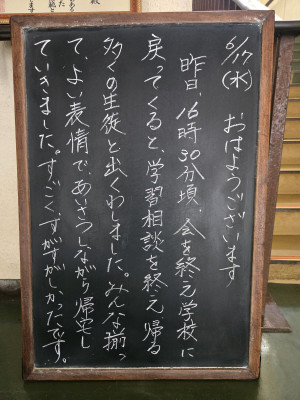 6/17(水)
おはようございます
昨日、16時30分頃、会を終え学校に
戻ってくると、学習相談を終え帰る
多くの生徒と出くわしました。みんな揃っ
て、よい表情で、あいさつしながら帰宅し
ていきました。すごく、すがすがしかったです。